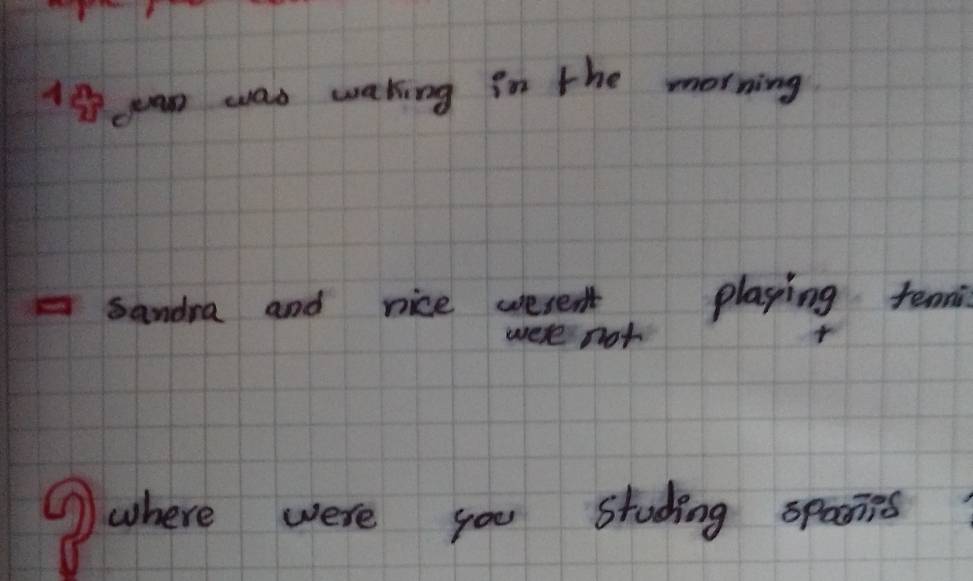 1 + Juan was waking in the morning
- Sandra and nice weren't playing
were not +
? where were you studing spanis ?